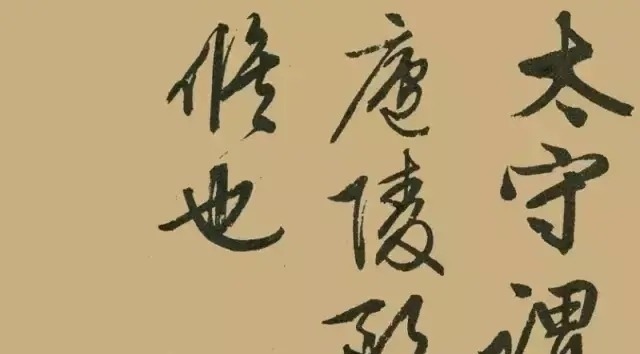 太守謂
廬陵歐
脩也